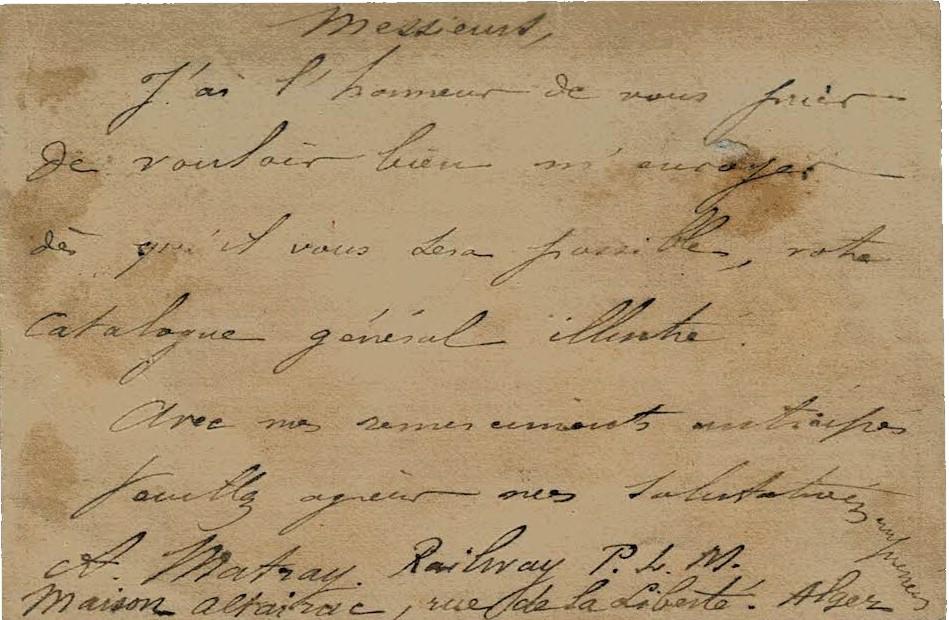 Messieurs,
J'ai l'honneur de vous prier
de vouloir bien m'envoyer
dès qu'il vous sera possible, votre
Catalogue général illustré.
Avec mes remerciements anticipés
Veuillez agréer mes salutations empressées
A. Matray. Railway P. L. M.
Maison Altairac, rue de la Liberté. Alger